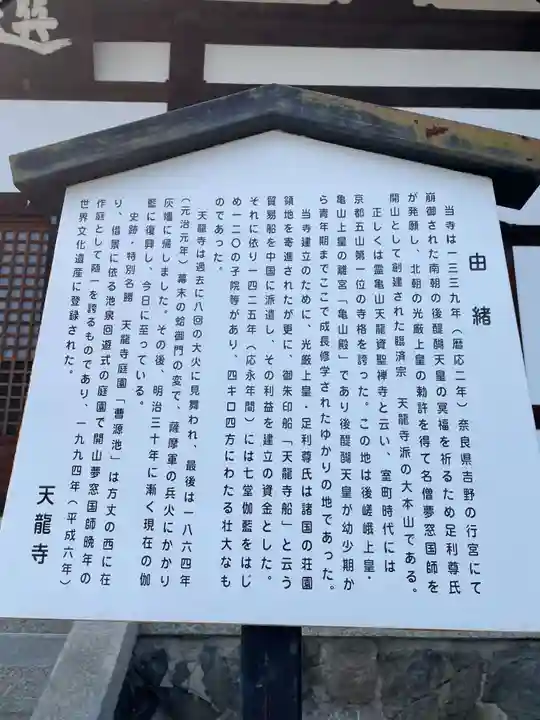 選
由緒
当寺は一三三九年（暦応二年）奈良県吉野の行宮にて
崩御された南朝の後醍醐天皇の冥福を祈るため足利尊氏
が発願し、北朝の光厳上皇の勅許を得て名僧夢窓国師を
開山として創建された臨済宗 天龍寺派の大本山である。
正しくは霊亀山天龍資聖禅寺と云い、室町時代には
京都五山第一位の寺格を誇った。この地は後嵯峨上皇・
亀山上皇の離宮「亀山殿」であり後醍醐天皇が幼少期か
ら青年期までここで成長修学されたゆかりの地であった。
当寺建立のために、光厳上皇・足利尊氏は諸国の荘園
領地を寄進されたが更に、御朱印船「天龍寺船」と云う
貿易船を中国に派遣し、その利益を建立の資金とした。
それに依り一四二五年（応永年間）には七堂伽藍をはじ
め一二〇の子院等があり、四キロ四方にわたる壮大なも
のであった。
天龍寺は過去に八回の大火に見舞われ、最後は一八六四年
（元治元年）幕末の蛤御門の変で、薩摩軍の兵火にかかり
灰燼に帰しました。その後、明治三十年に漸く現在の伽
藍に復興し、今日に至っている。
史跡・特別名勝 天龍寺庭園「曹源池」は方丈の西に在
り、借景に依る池泉回遊式の庭園で開山夢窓国師晩年の
作庭として随一を誇るものであり、一九九四年（平成六年）
世界文化遺産に登録された。
天龍寺